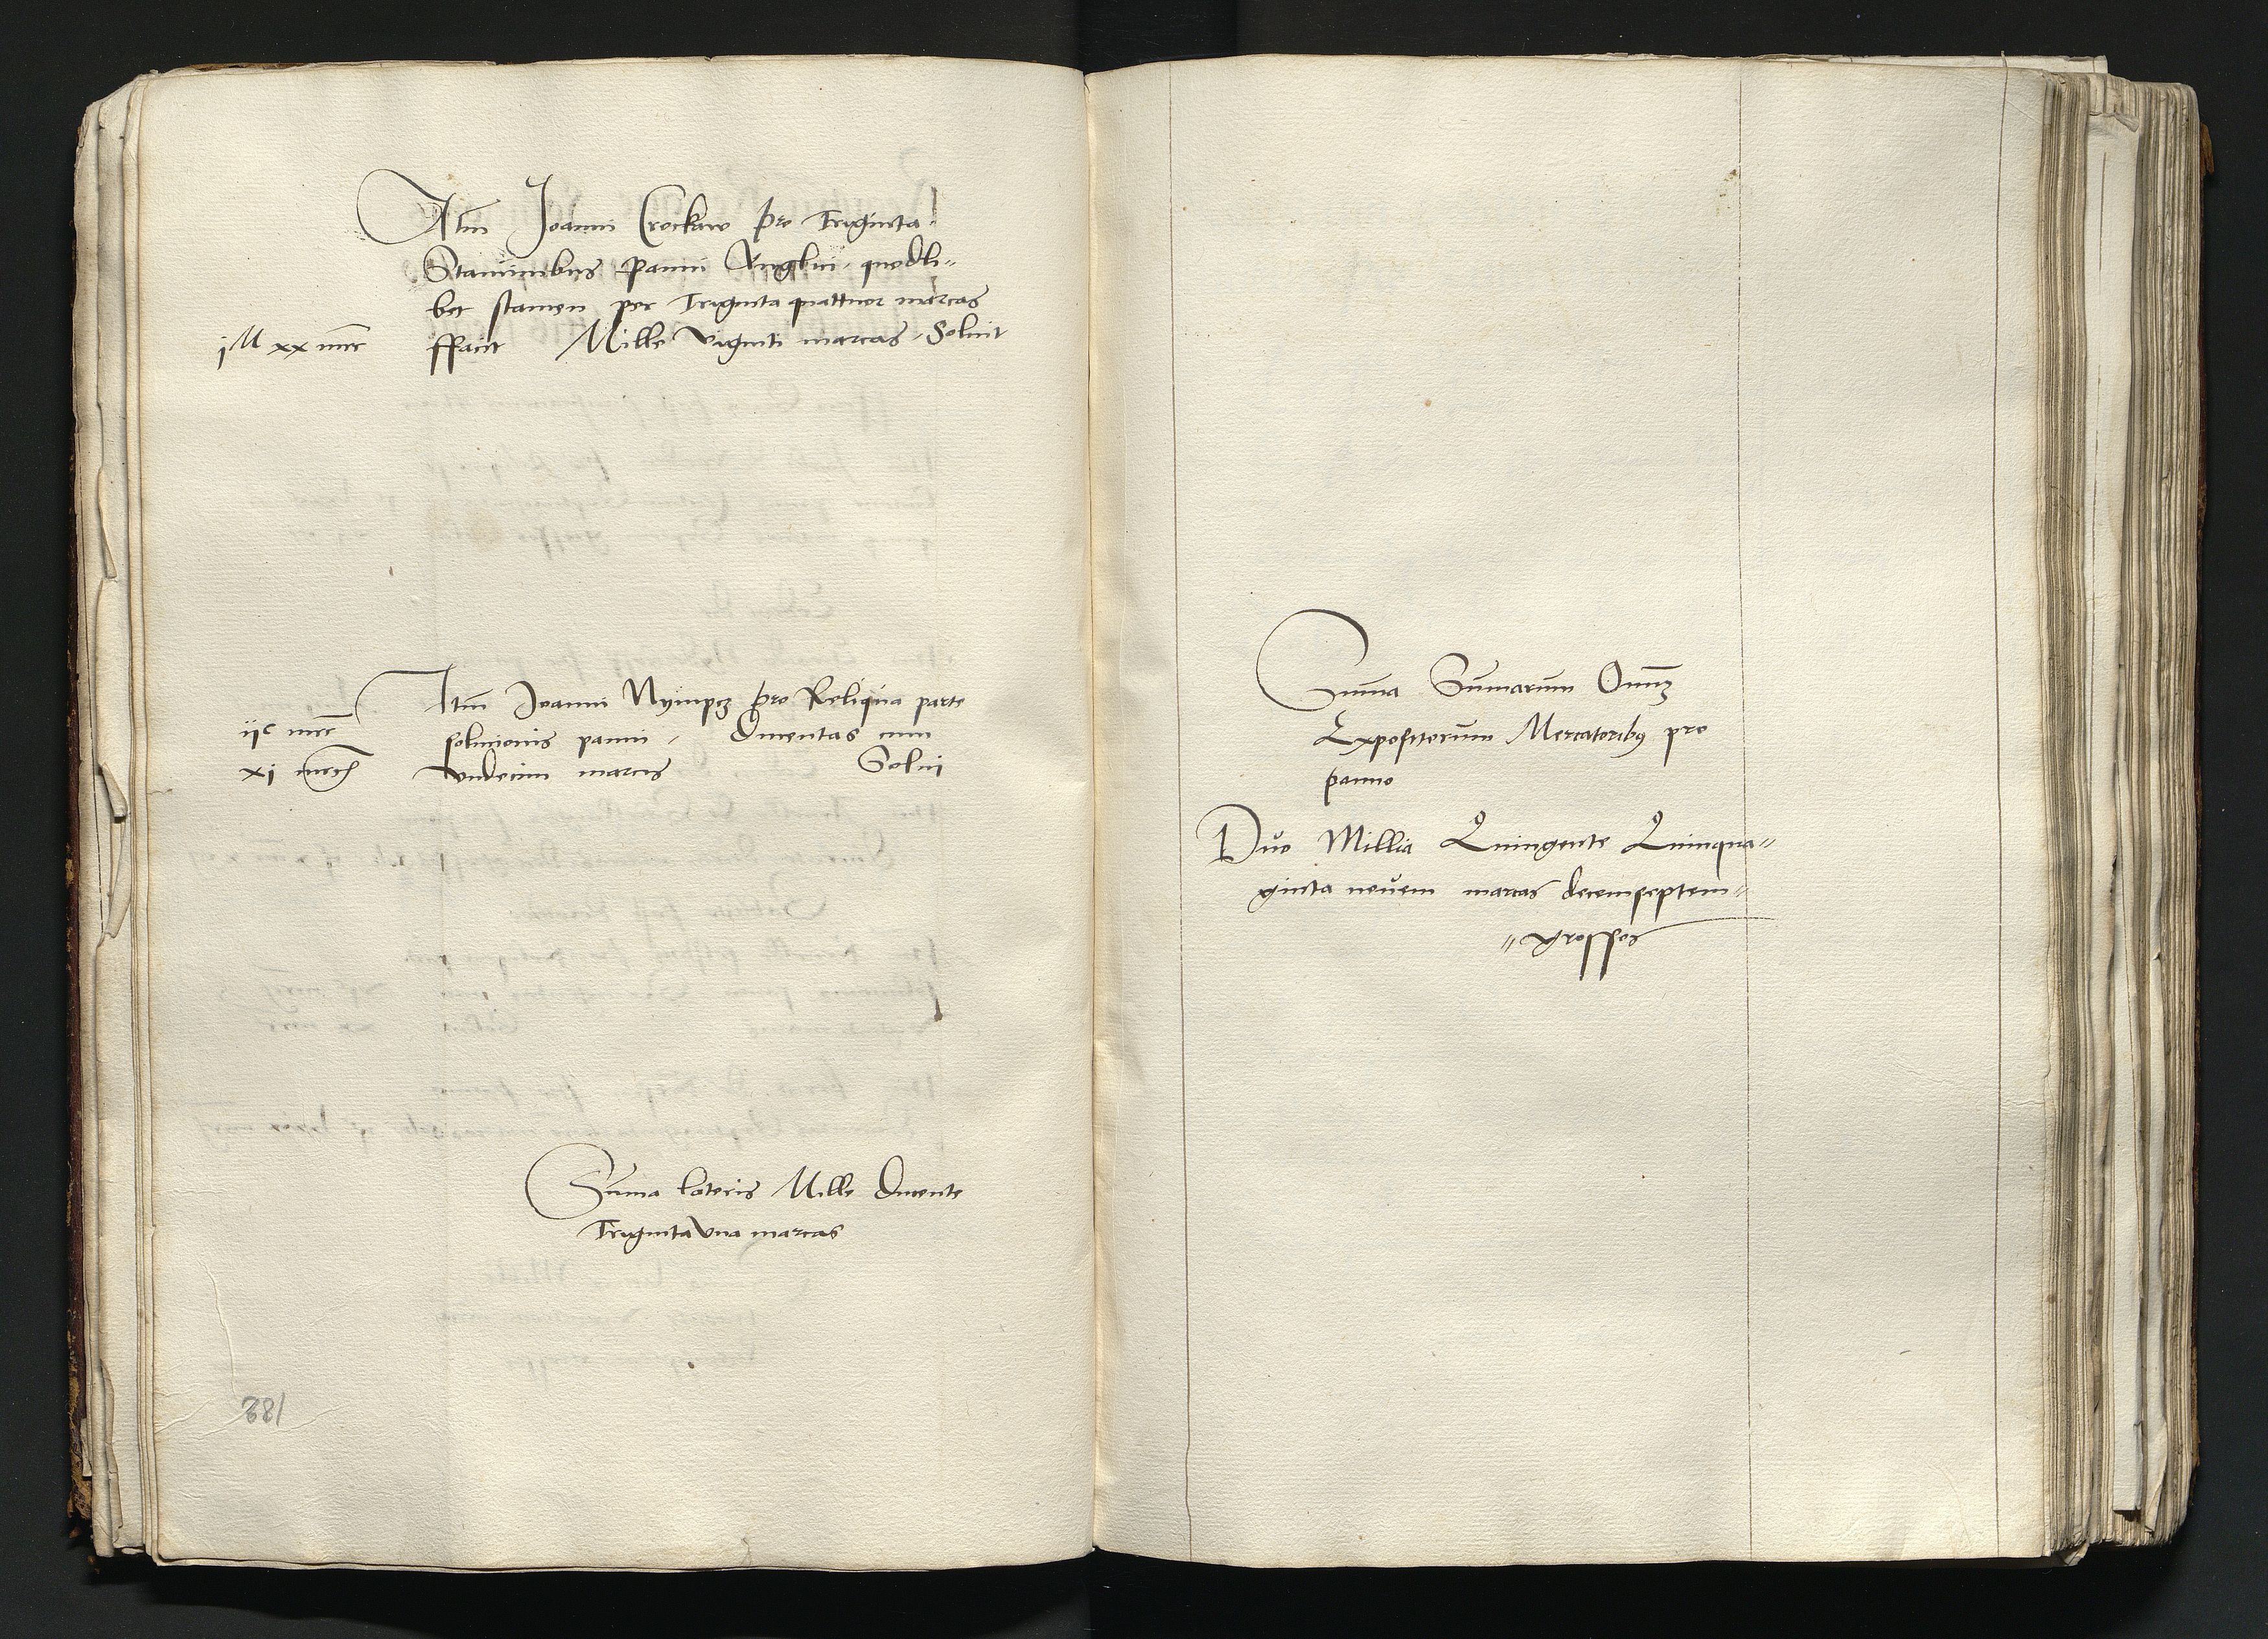 Itm Joanni Crockaw pro Triginta
Staminibus panni Anglici quodli-
bet stamen per Triginta quattuor marcas
jM xx mrc ffacit Mille viginti marcas Soluit
Itm Joanni Nyimpcz pro Reliqua parte
ijc mrc solucionis panni Ducentas cum
xj mrc vndecim marcis Solui
Suma lateris Mille Ducente
Triginta Vna marcas
Suma Sumarum Omnẽ
Expositorum Mercatoribus pro
panno
Duo Millia Quingente Quinqua-
ginta nouem marcas decemseptem
grossos